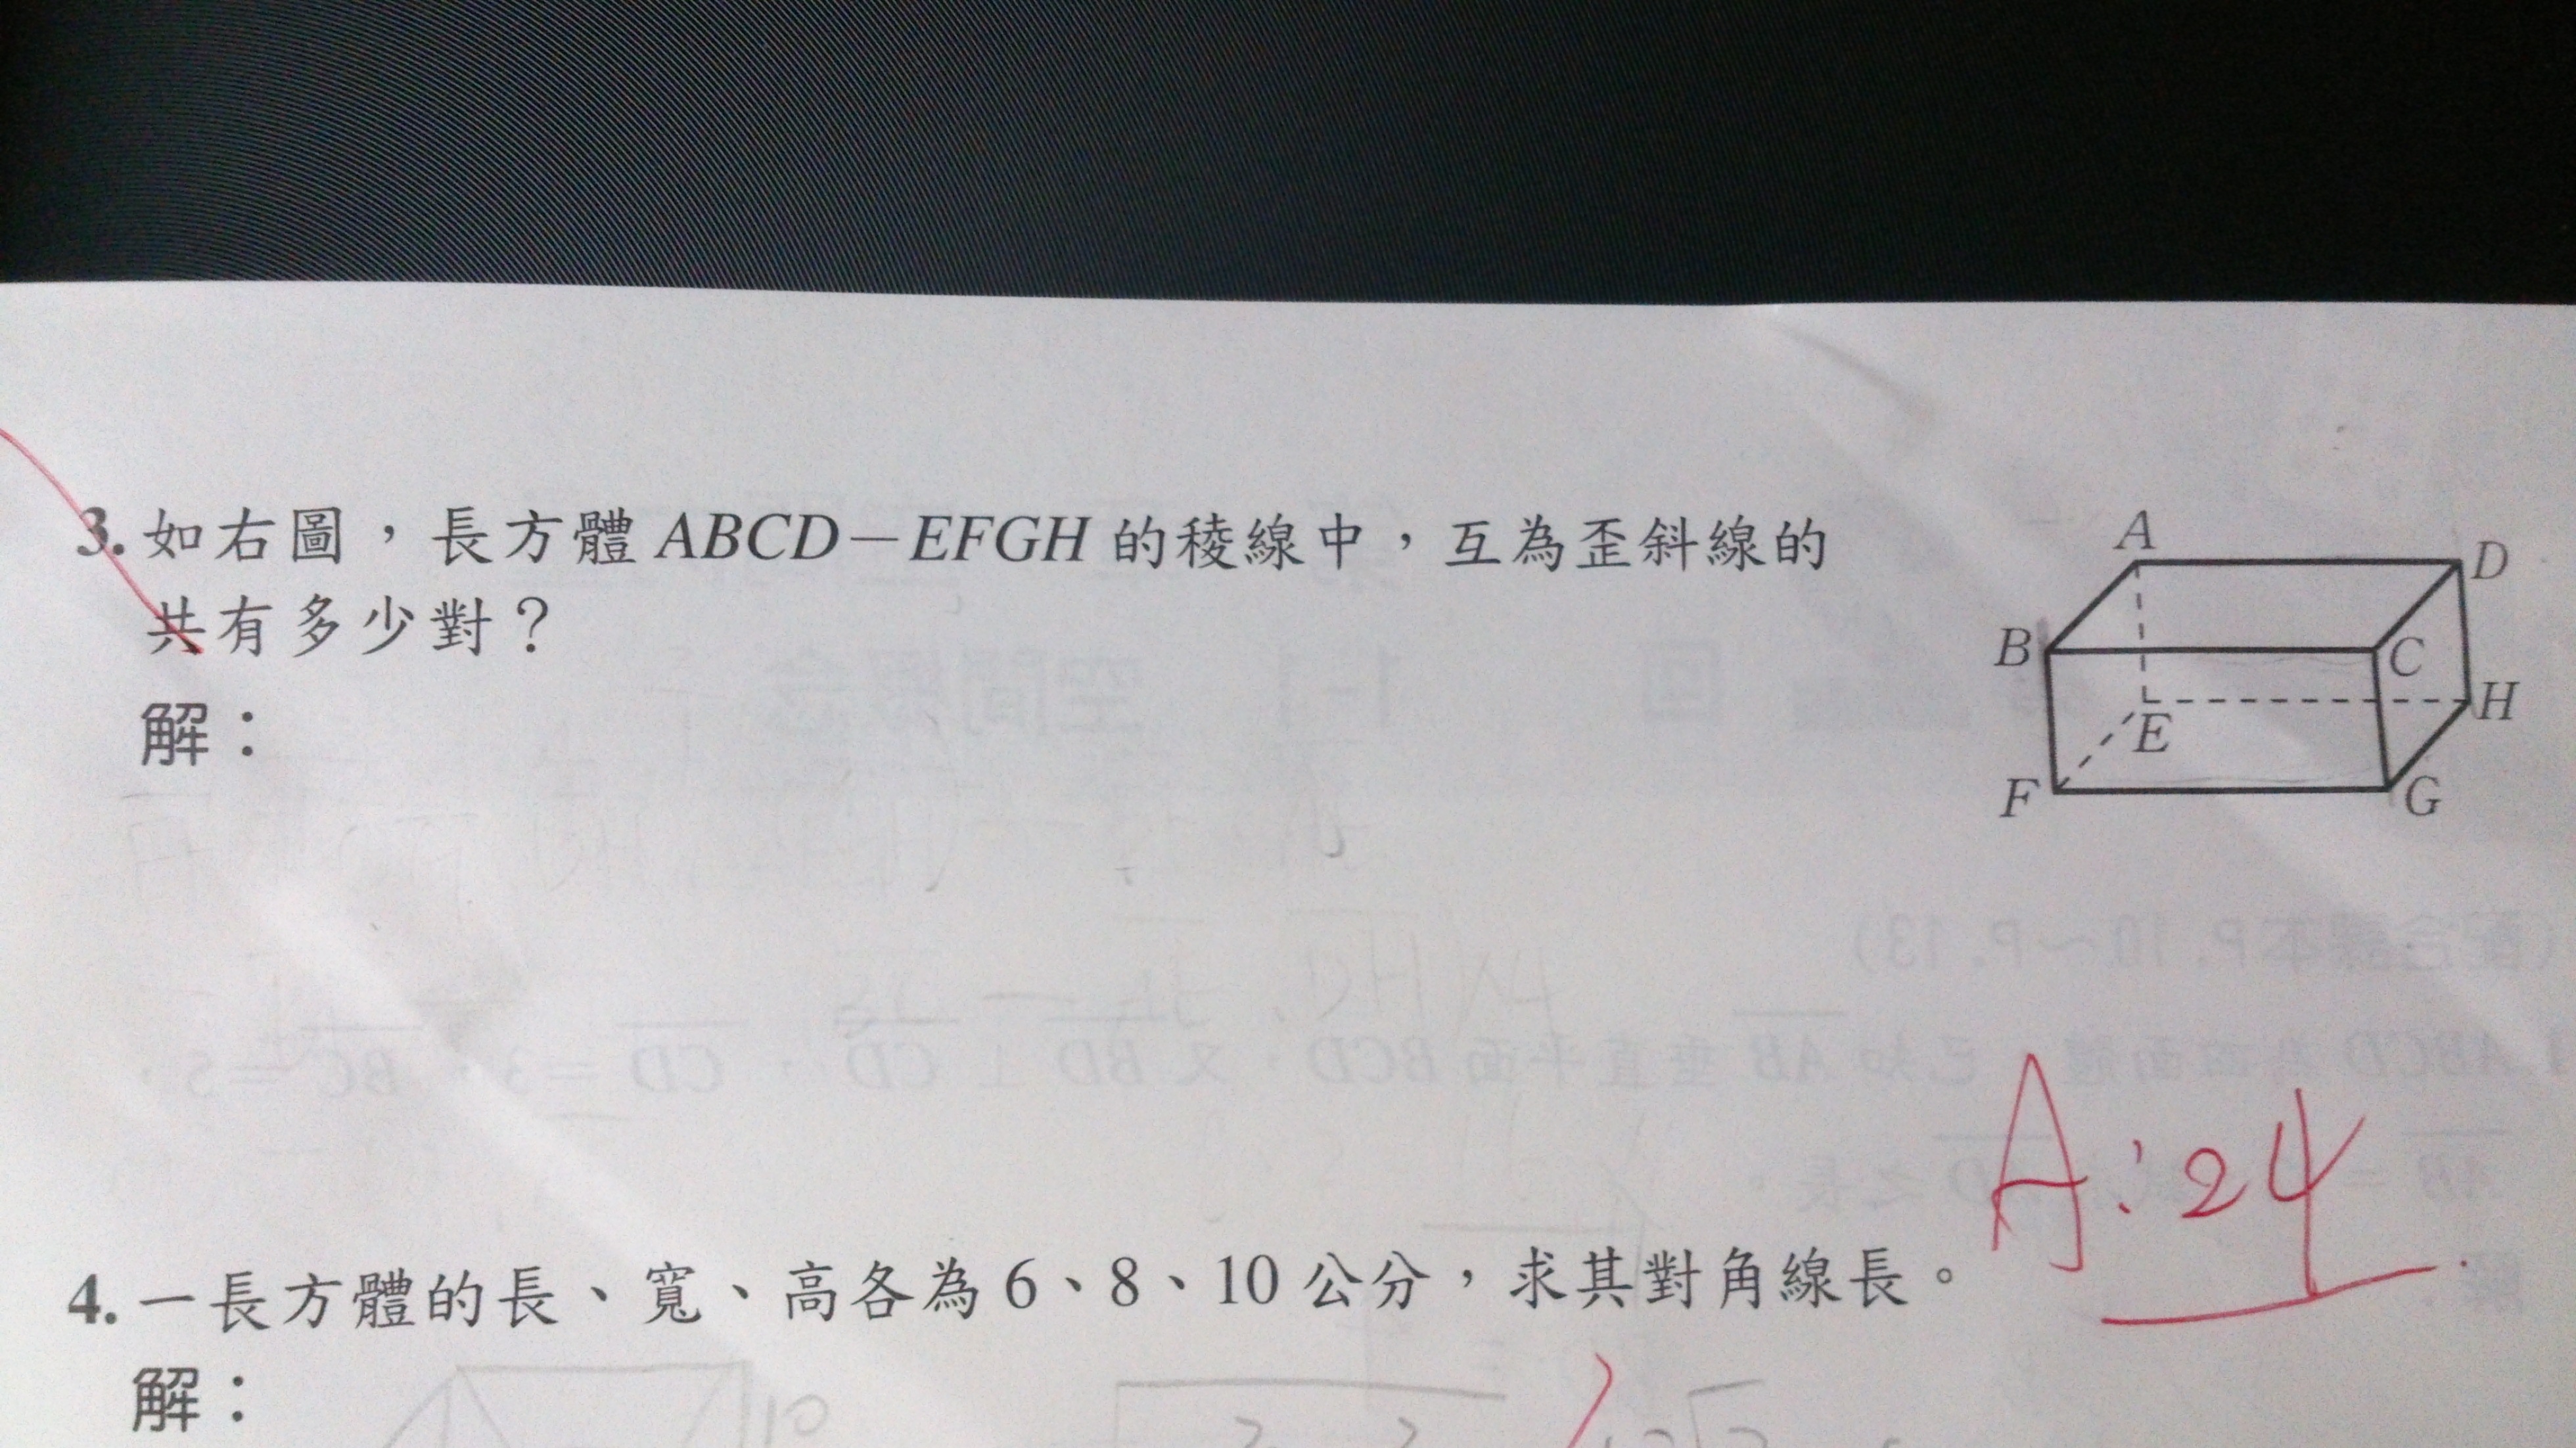 3. 如右圖，長方體 ABCD－EFGH 的稜線中，互為歪斜線的
共有多少對？
解：
A
D
B
C
H
E
F
G
A：24
4. 一長方體的長、寬、高各為 6、8、10 公分，求其對角線長。
解：